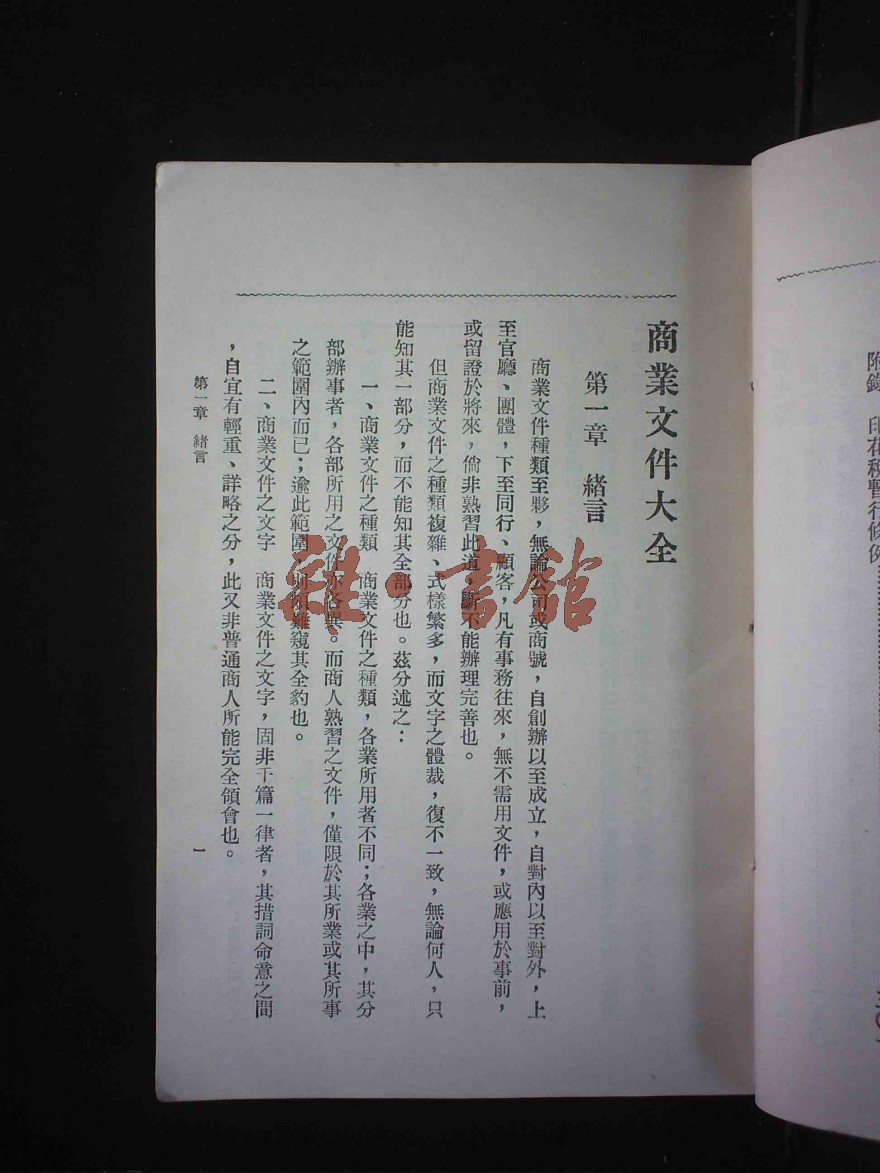 附錄 印花稅暫行條例
商業文件大全
第一章 緒言
商業文件種類至夥，無論公司或商號，自創辦以至成立，自對內以至對外，上
至官廳、團體，下至同行、顧客，凡有事務往來，無不需用文件，或應用於事前，
或留證於將來，倘非熟習此道，斷不能辦理完善也。
但商業文件之種類複雜、式樣繁多，而文字之體裁，復不一致，無論何人，只
能知其一部分，而不能知其全部分也。茲分述之：
一、商業文件之種類 商業文件之種類，各業所用者不同；各業之中，其分
部辦事者，各部所用之文件亦各異。而商人熟習之文件，僅限於其所業或其所事
之範圍內而已；逾此範圍，則頗難窺其全豹也。
二、商業文件之文字 商業文件之文字，固非千篇一律者，其措詞命意之間
，自宜有輕重、詳略之分，此又非普通商人所能完全領會也。
第一章 緒言
一
雜·書館